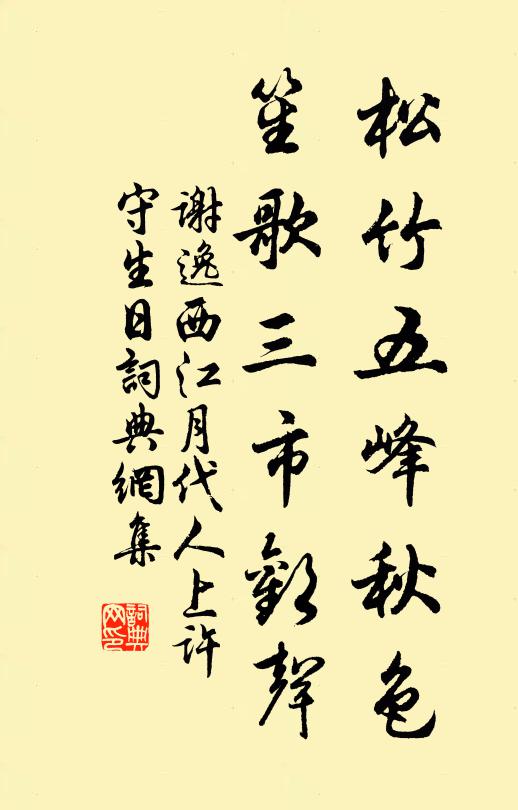 松竹五峰秋色
笙歌三市歡聲
謝逸西江月代人上許
守生日詞典網集
詞典
网印